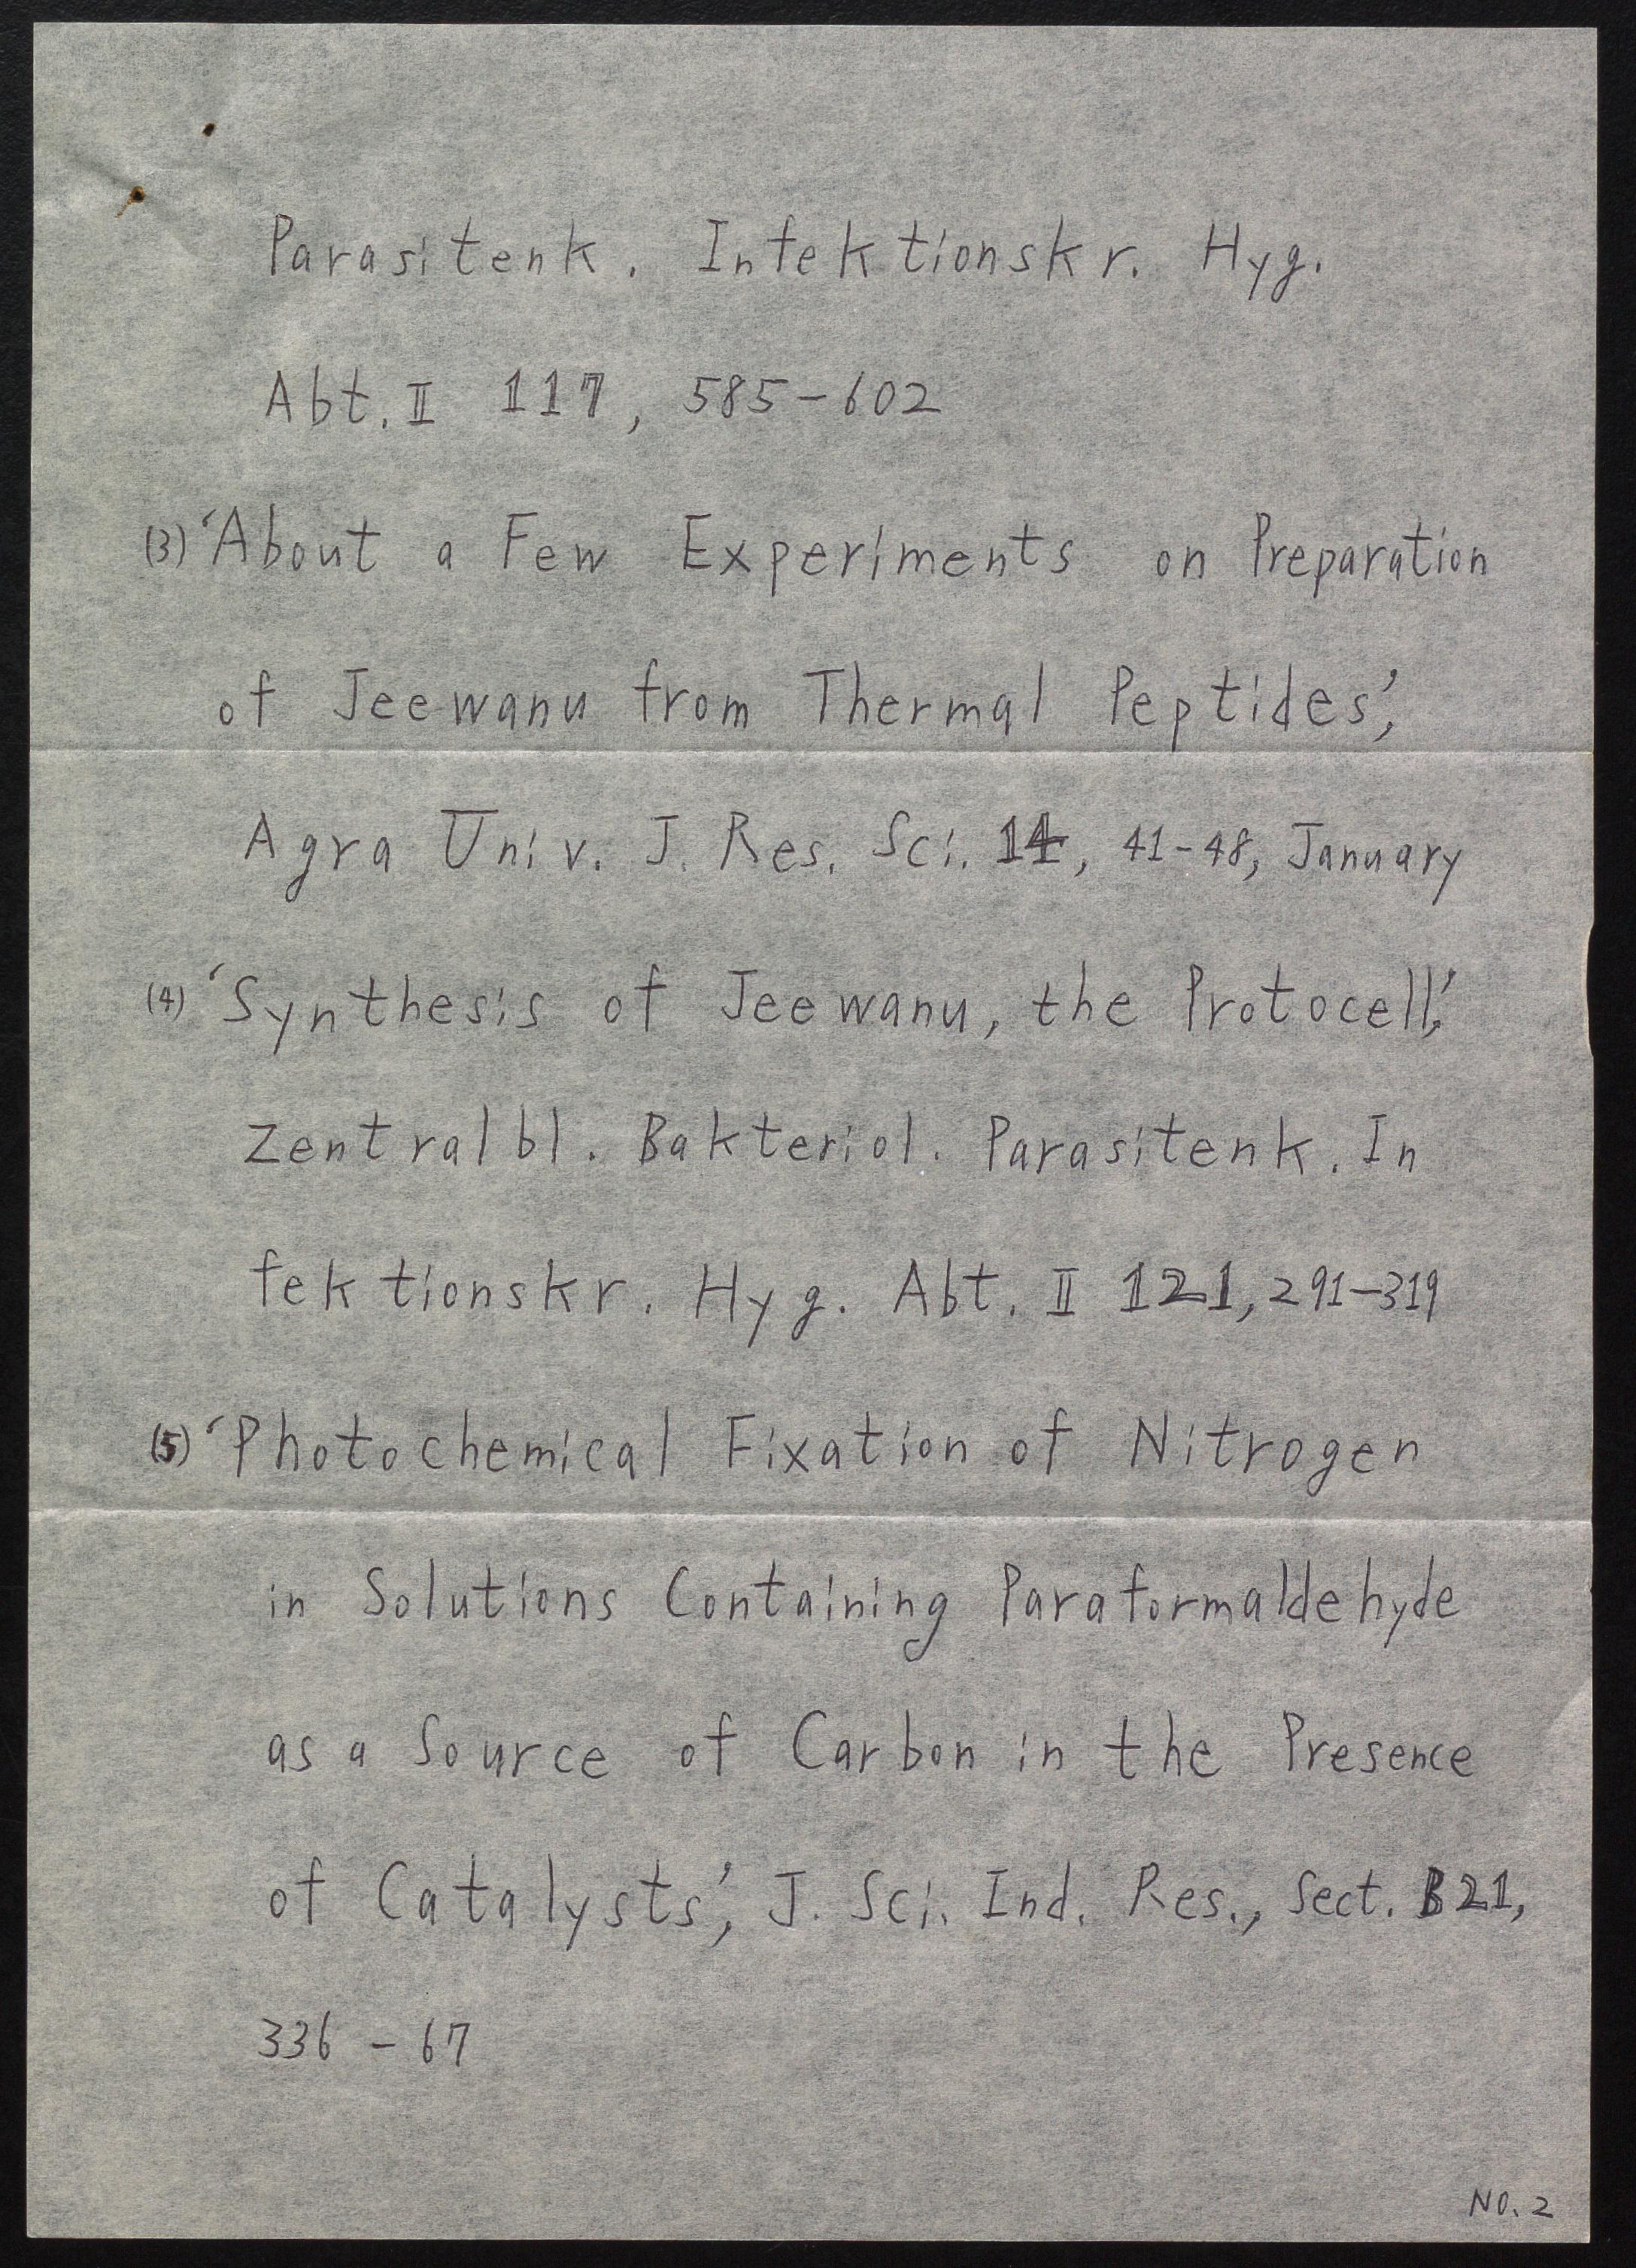 Parasitenk. Infektionskr. Hyg.
Abt. II 117, 585-602
(3) 'About a Few Experiments on Preparation
of Jeewanu from Thermal Peptides',
Agra Univ. J. Res. Sci. 14, 41-48, January
(4) 'Synthesis of Jeewanu, the Protocell',
Zentralbl. Bakteriol. Parasitenk. In
fektionskr. Hyg. Abt. II 121, 291-319
(5) 'Photochemical Fixation of Nitrogen
in Solutions Containing Paraformaldehyde
as a Source of Carbon in the Presence
of Catalysts', J. Sci. Ind. Res., Sect. B21,
336-67
NO. 2